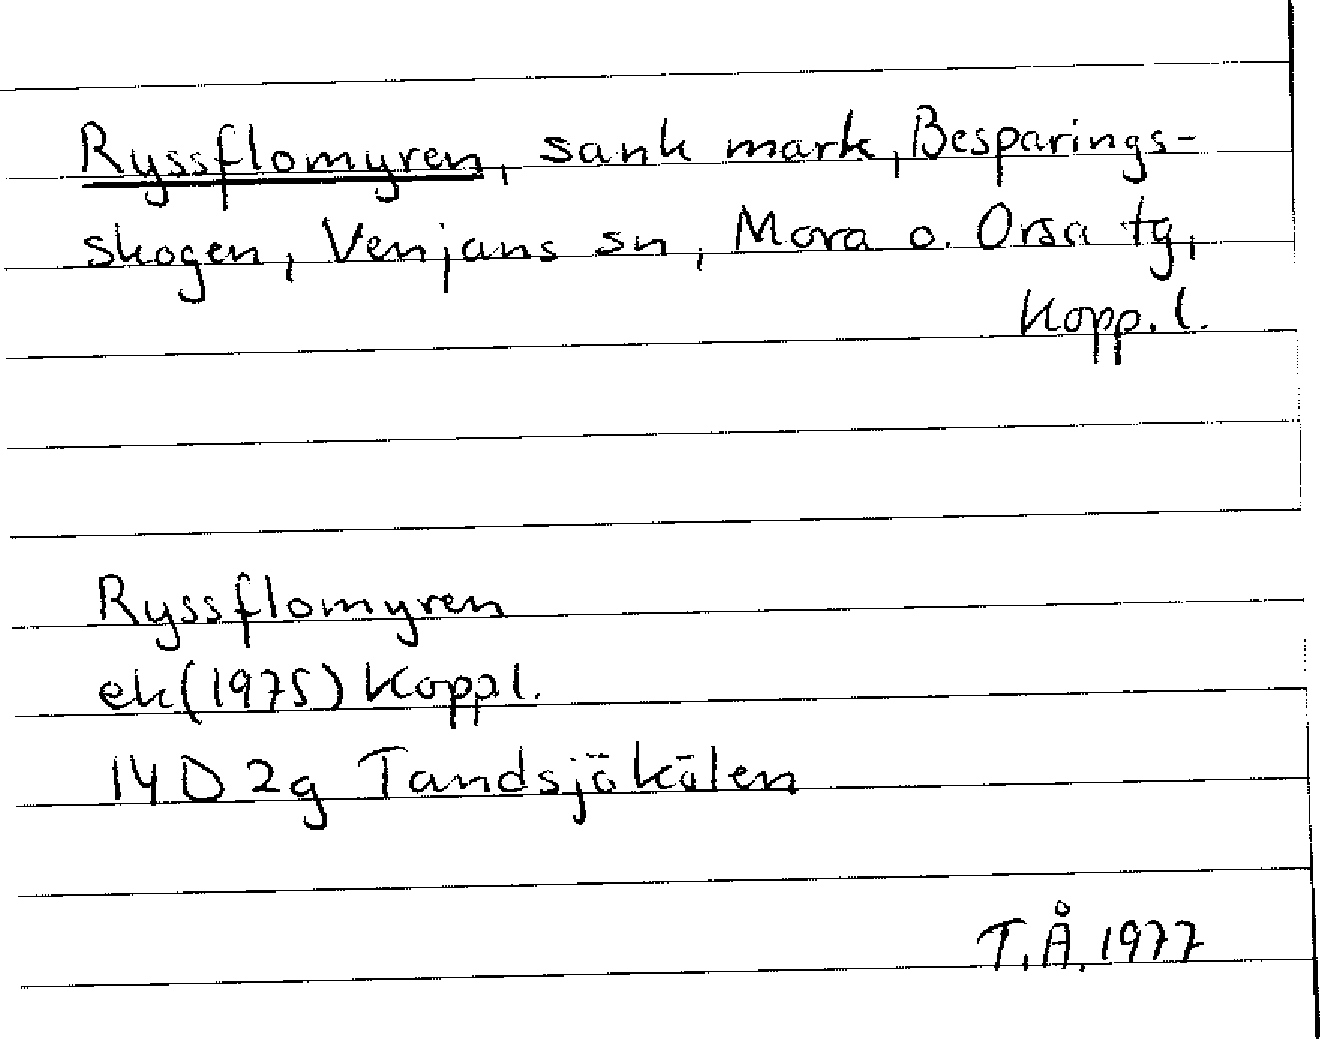 Ryssflomyren, sank mark, Besparings-
skogen, Venjans sn, Mora o. Orsa tg,
Kopp. l.
Ryssflomyren
ek (1975) Koppl.
14 D 2g Tandsjökölen
T.Å. 1977